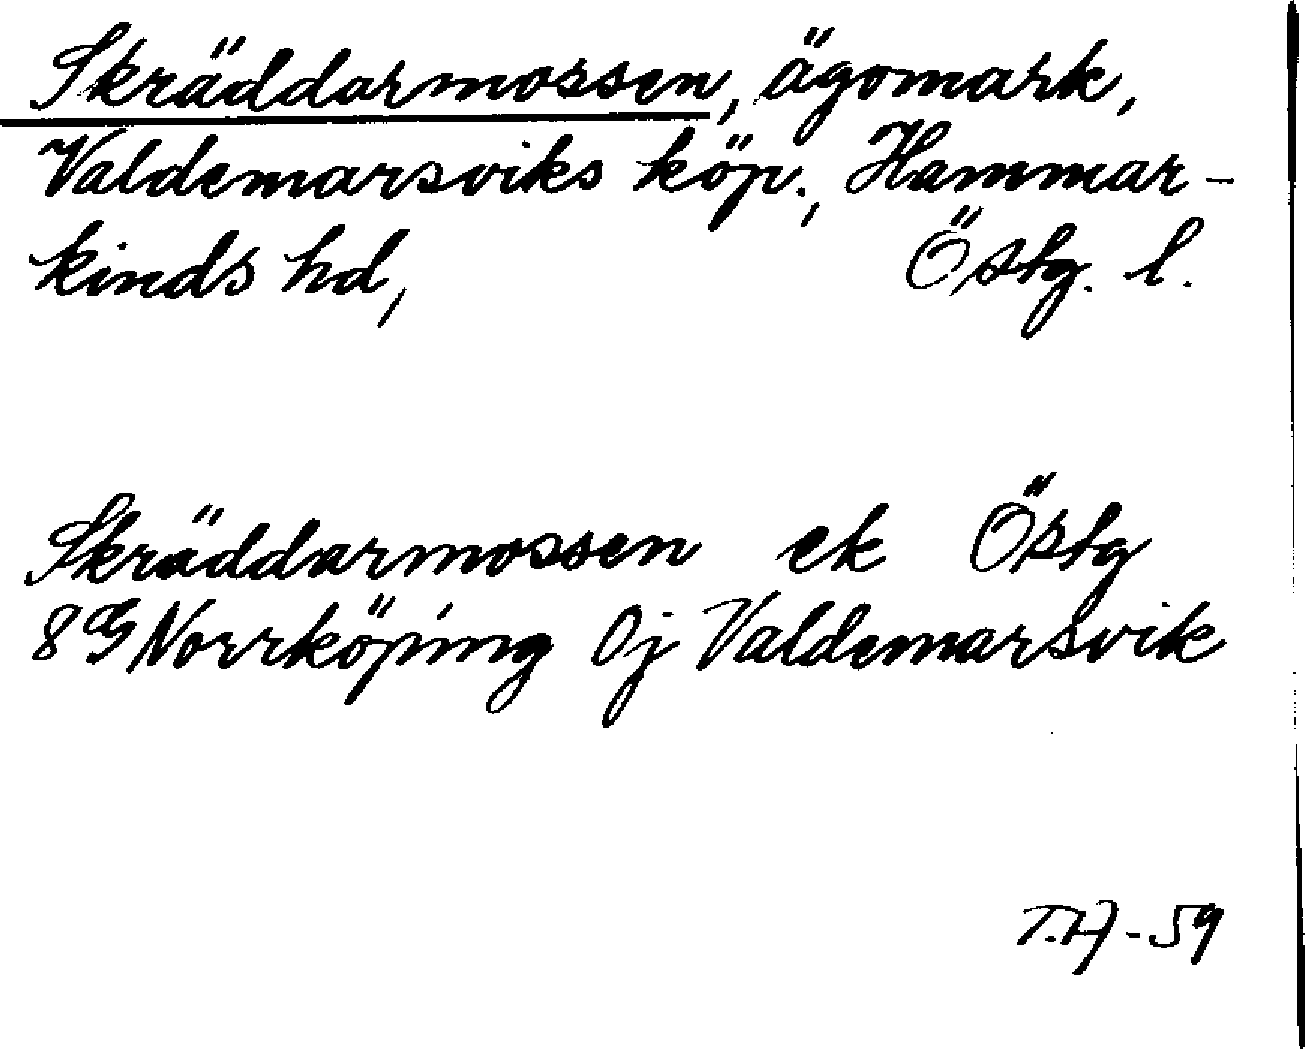 Skräddarmossen, ägomark,
Valdemarsviks köp., Hammar-
kinds hd, Östg. l.
Skräddarmossen ek Östg
8G Norrköping Oj Valdemarsvik
T.H-59